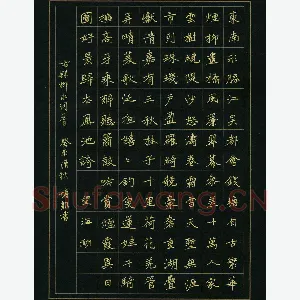 東南形勝江吴都會錢塘自古繁華
煙柳畫橋風簾翠幕參差十萬人家
雲樹繞堤沙怒濤卷霜雪天塹無涯
市列珠璣户盈羅綺競豪奢重湖疊
巘清嘉有三秋桂子十里荷花羌管
弄晴菱歌泛夜嬉嬉釣叟蓮娃千騎
擁高牙乘醉聽簫鼓吟賞煙霞異日
圖好景歸去鳳池誇 望海潮
柳永詞 書
Shufawang.CN